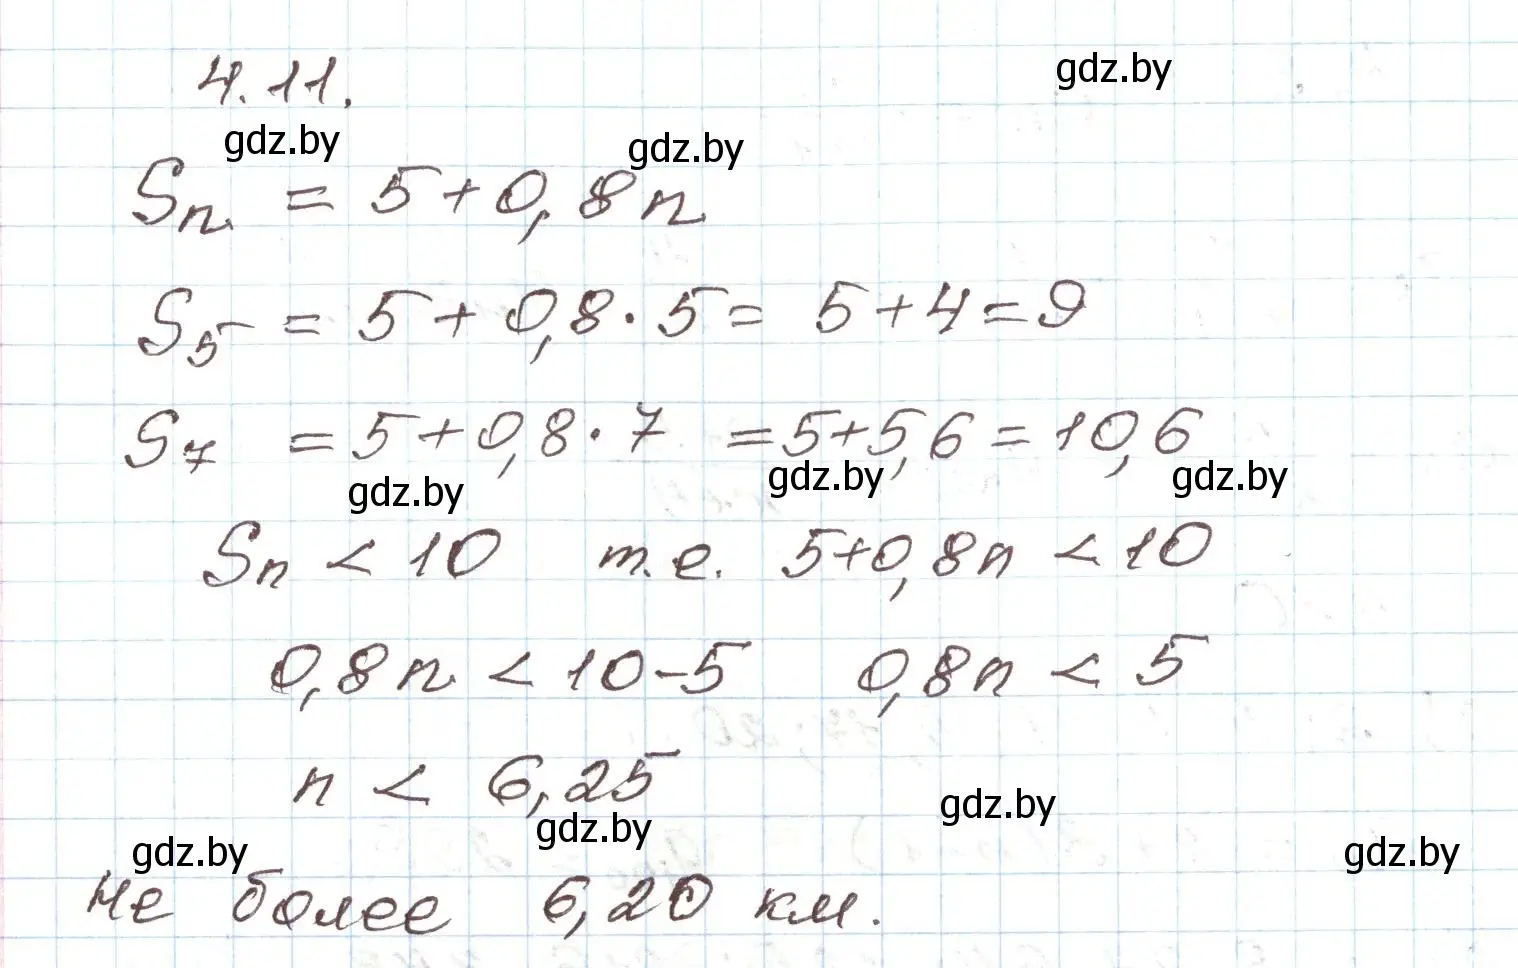 4.11.
gdz.by
gdz.by gdz.by
Sₙ = 5+0,8n
S₅ = 5+0,8·5= 5+4=9
S₇ = 5+0,8·7 =5+5,6=10,6
gdz.by gdz.by gdz.by
Sₙ < 10 т.е. 5+0,8n < 10
0,8n < 10-5 0,8n < 5
n < 6,25
gdz.by
gdz.by
gdz.by gdz.by
не более 6,20 км.